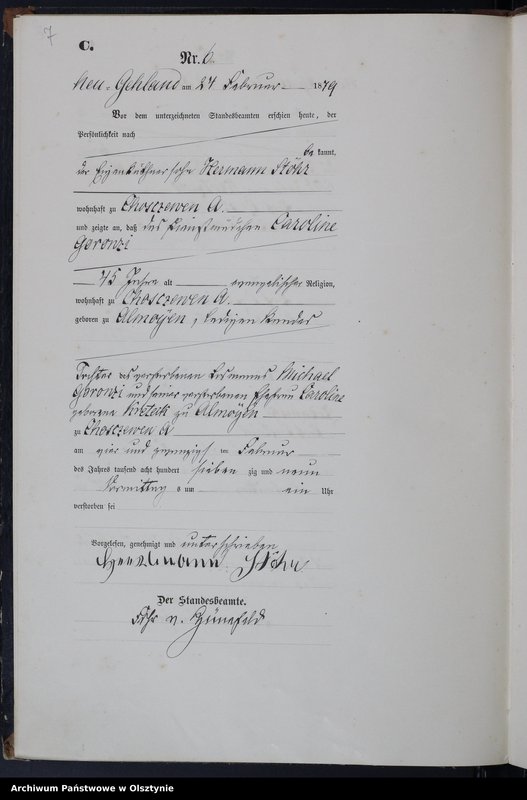 7
C.
Nr. 6.
Neu-Gehland am 24 Februar 1879
Vor dem unterzeichneten Standesbeamten erschien heute, der
Persönlichkeit nach
be kannt,
der Eigenkäthnersohn Hermann Stöhr
wohnhaft zu Choszewen A.
und zeigte an, daß das Dienstmädchen Caroline
Goronzi
45 Jahre alt evangelischer Religion,
wohnhaft zu Choszewen A.
geboren zu Almoyen, ledigen Standes
Tochter des verstorbenen Michael
Goronzi und seiner verstorbenen Ehefrau Caroline
geborene zu Almoyen
zu Choszewen A
am vier und zwanzigs ten Februar
des Jahres tausend acht hundert sieben zig und neun
Vormittag s um ein Uhr
verstorben sei
Vorgelesen, genehmigt und unterschrieben
Herrmann Stöhr
Der Standesbeamte.
Archiwum Państwowe w Olsztynie